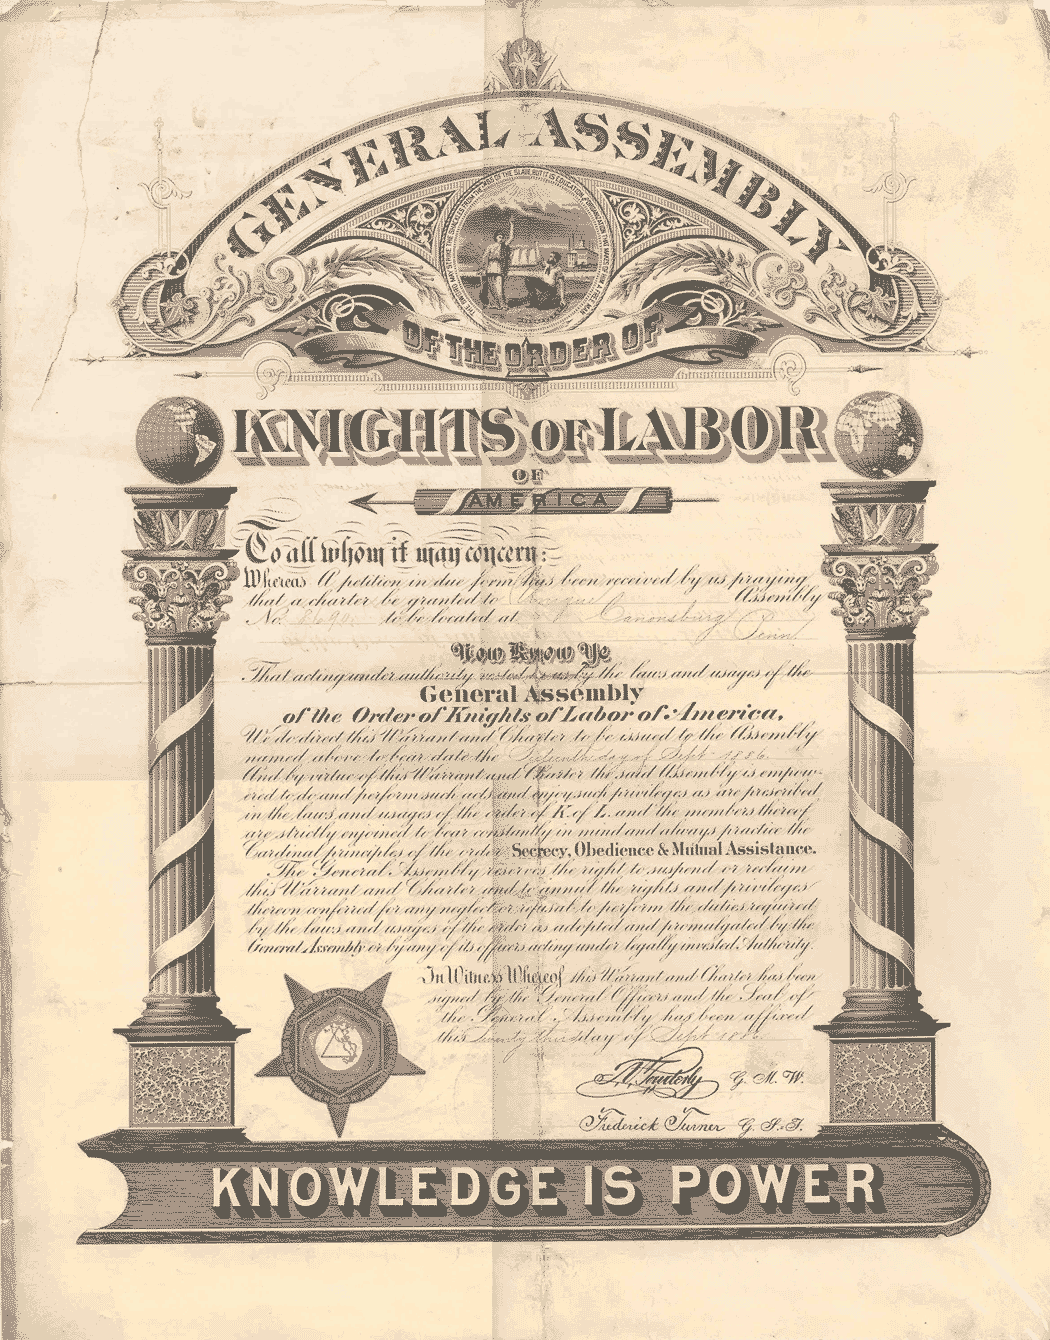 GENERAL ASSEMBLY
OF THE ORDER OF
KNIGHTS OF LABOR
OF
AMERICA
To all whom it may concern:
Whereas A petition in due form has been received by us praying
that a charter be granted to Assembly
No. to be located at Canonsburg Penn
Now Know Ye
That acting under authority vested in us by the laws and usages of the
General Assembly
of the Order of Knights of Labor of America,
We do direct this Warrant and Charter to be issued to the Assembly
named above to bear date the day of Sept 1886
And by virtue of this Warrant and Charter the said Assembly is empow-
ered to do and perform such acts and enjoy such privileges as are prescribed
in the laws and usages of the order of K. of L. and the members thereof
are strictly enjoined to bear constantly in mind and always practice the
Cardinal principles of the order Secrecy, Obedience & Mutual Assistance.
The General Assembly reserves the right to suspend or reclaim
this Warrant and Charter and to annul the rights and privileges
thereon conferred for any neglect or refusal to perform the duties required
by the laws and usages of the order as adopted and promulgated by the
General Assembly or by any of its officers acting under legally invested Authority.
In Witness Whereof this Warrant and Charter has been
signed by the General Officers and the Seal of
the General Assembly has been affixed
this twenty third day of Sept 1886
T. V. Powderly G. M. W.
Frederick Turner G. S.-T.
KNOWLEDGE IS POWER